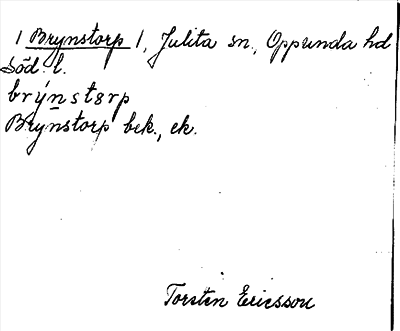 / Brynstorp /, Julita sn., Oppunda hd
Söd. l.
brýnstɜrp
Brynstorp bek., ek.
Torsten Ericsson